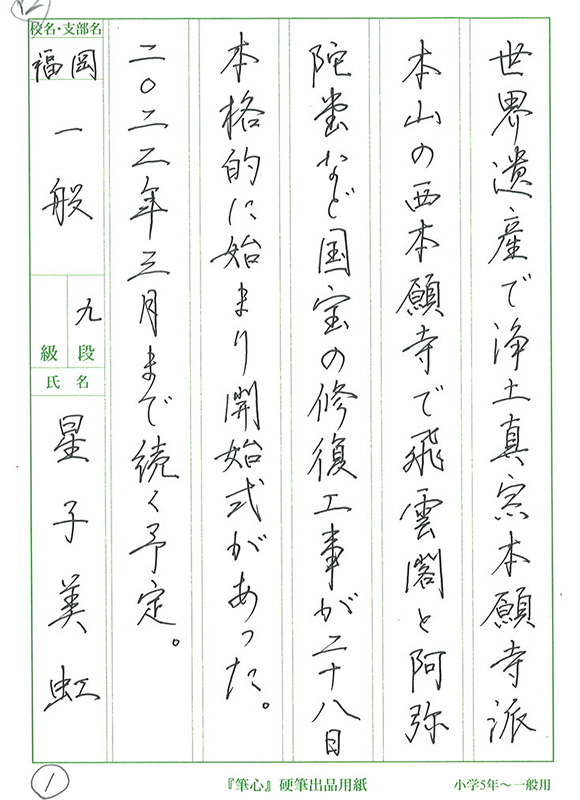 世界遺産で浄土真宗本願寺派
本山の西本願寺で飛雲閣と阿弥
陀堂など国宝の修復工事が二十八日
本格的に始まり開始式があった。
二〇二二年三月まで続く予定。
校名・支部名
福岡
一般
九
級 段
氏 名
星子美虹
1
『筆心』硬筆出品用紙
小学5年～一般用